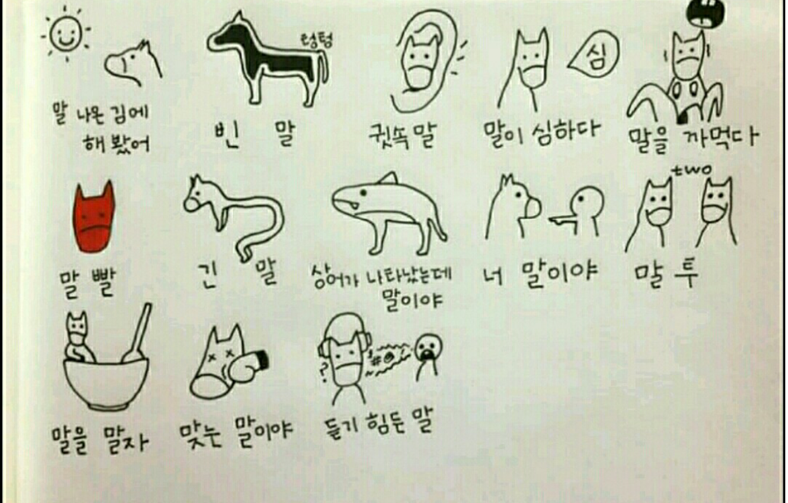 말 나온 김에
해 봤어
텅텅
빈 말
귓속말
심
말이 심하다
말을 까먹다
말 빨
긴 말
상어가 나타났는데
말이야
너 말이야
two
말 투
말을 말자
맞는 말이야
?
#@
듣기 힘든 말